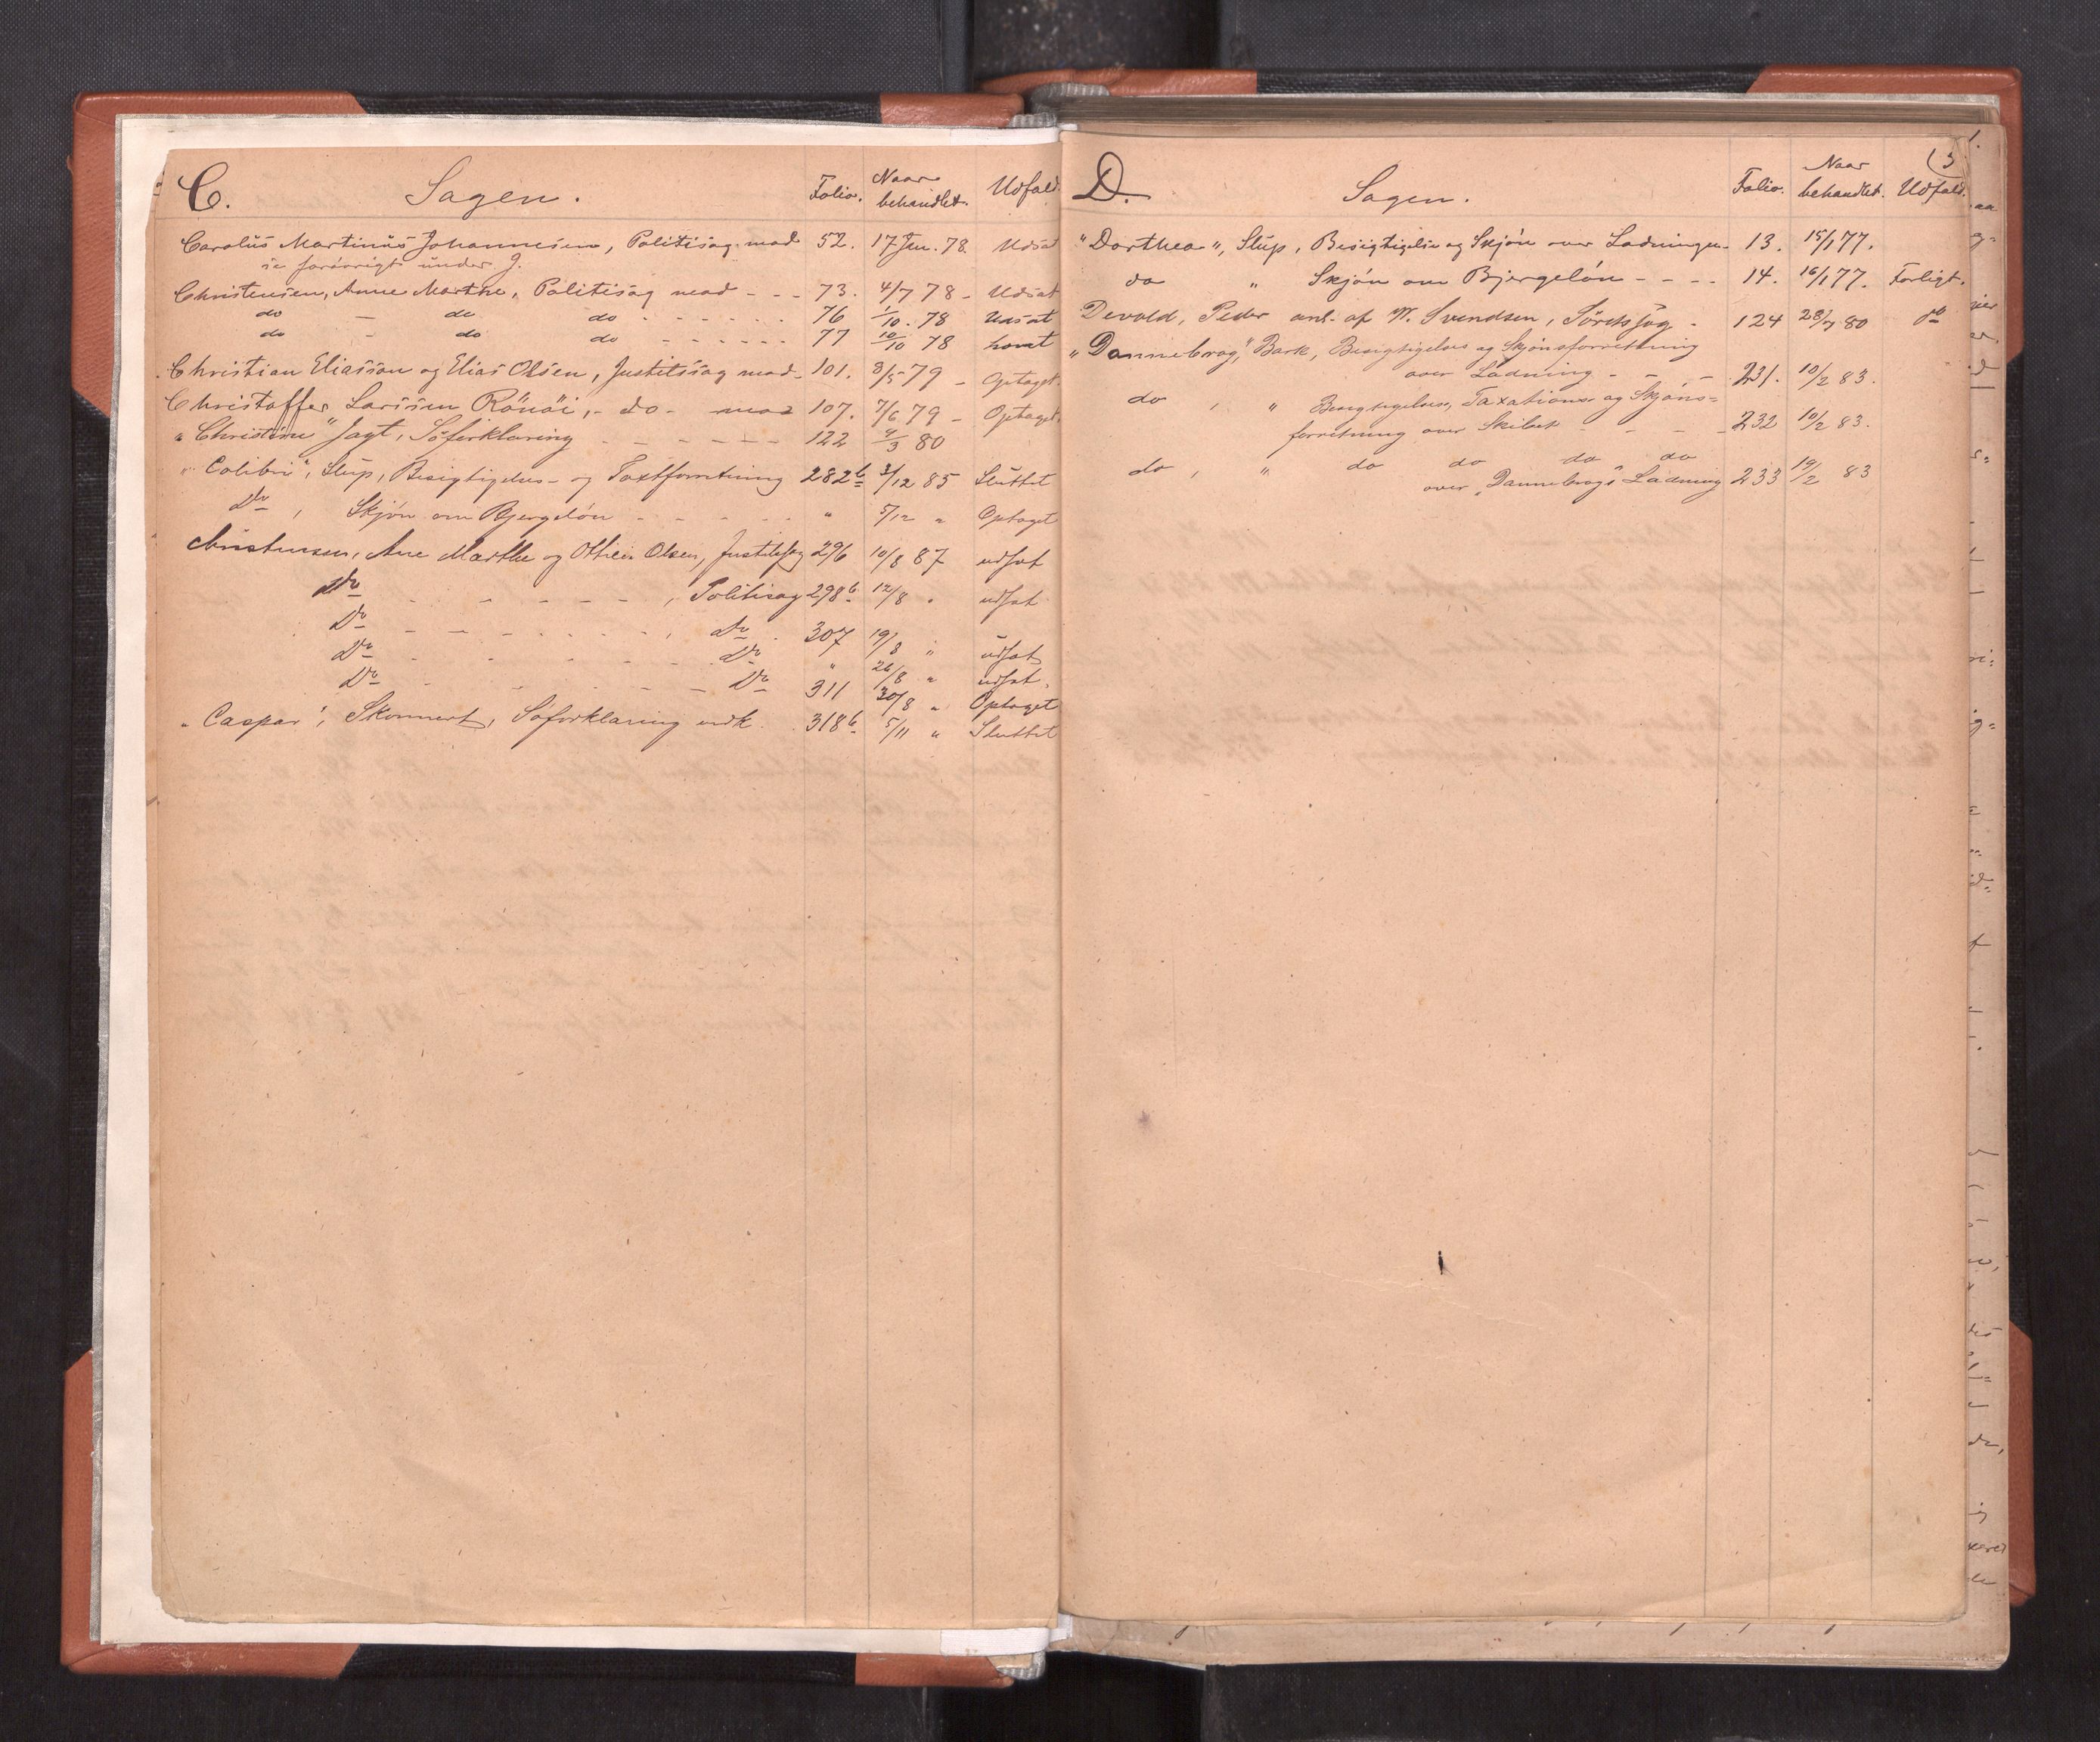 C. Sagen. Folio. Naar behandlet. Udfald
Carolus Martinus Johannesen, Politisag mod 52. 17 Jan. 78. Udsat
se forövrigt under J.
Christensen, Anne Marthe, Politisag mod - - - 73. 4/7 78 - Udsat
do - do do - - - - - - 76 1/10. 78 Udsat
do - do do - - - - - - 77 10/10 78 hævet
Christian Eliasson og Elias Olsen, Justitssag mod - 101. 8/5 79 - Optaget.
Christoffer Larssen Rönöi, - do - mod 107. 7/6 79 - Optaget.
"Christine" Jagt, Söforklaring - - - - - - 122 4/3 80
"Colibri", Slup, Besigtigelses- og Taxtforretning 282b 3/12 85 Sluttet
Do , Skjön om Bjergelön - - - - - " 5/12 " Optaget
Christensen, Ane Marthe og Olsen, Justitssag 296 10/8 87 udsat
Do - - - - - - , Politisag 298b 12/8 " udsat
Do - - - - - - , Do . 307 19/8 " udsat
Do - - - - - - Do " 26/8 " udsat.
Do - - - - - - Do 311 30/8 " Optaget
"Caspar", Skonnert, Söforklaring vedk. 318b 5/11 " Sluttet
D. Sagen. Folio. Naar behandlet. Udfald.
(3
"Dorthea", Slup, Besigtigelse og Skjön over Ladningen - 13. 15/1 77.
do " Skjön om Bjergelön - - - - 14. 16/1 77. Forligt.
Devold, Peder anl. af M. Svendsen, - 124 28/7 80 do
"Dannebrog," Bark, Besigtigelses og Skjönsforretning
over Ladning - - , - 231. 10/2 83.
do , " Besigtigelses, Taxations- og Skjöns-
forretning over Skibet - - - - 232 10/2 83.
do , " do do do do
over "Dannebrogs" Ladning 233 19/2 83